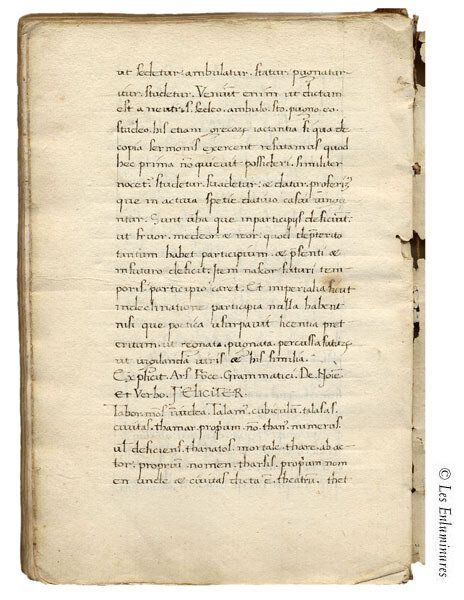 ut sedetur. ambulatur. statur. pugnatur.
itur. studetur. Veniunt enim ut dictum
est a neutris. sedeo. ambulo. sto. pugno. eo.
studeo. his etiam grecoꝝ iactantia si qua de
copia sermonis exercent refutamus quod
hec prima nō possideri. similiter
nocetur. studetur. suadetur. & datur. proferiꝫ
que in actiua spetie datiuo casui
ntur. Sunt alia que in participiis deficiūt.
ut fruor. medeor. & reor. quod preterito
tantum habet participium. & p̄senti &
infuturo deficit. Item nascor futuri tem
poris participio caret. Et inpersonalia sicut
indeclinatione participia nulla habent
nisi que poetica usurpauit licentia pret
eritum. ut regnata. pugnata. percussa
ut uigilanda uiris & his similia.
Explicit. Ars Foce. Grammatici. De Noīe
et Verbo. FELICITER.
labor. mos. Talam. cubiculū. talasas.
ciuitas. thamar. propriū. no. than. numerus
ul deficiens. thanatos. mortale. thare. ab ac
tor. proprium nomen. tharsis. propriū nom
en unde & ciuitas dicta ē. theatrū. thet
© Les Enluminures